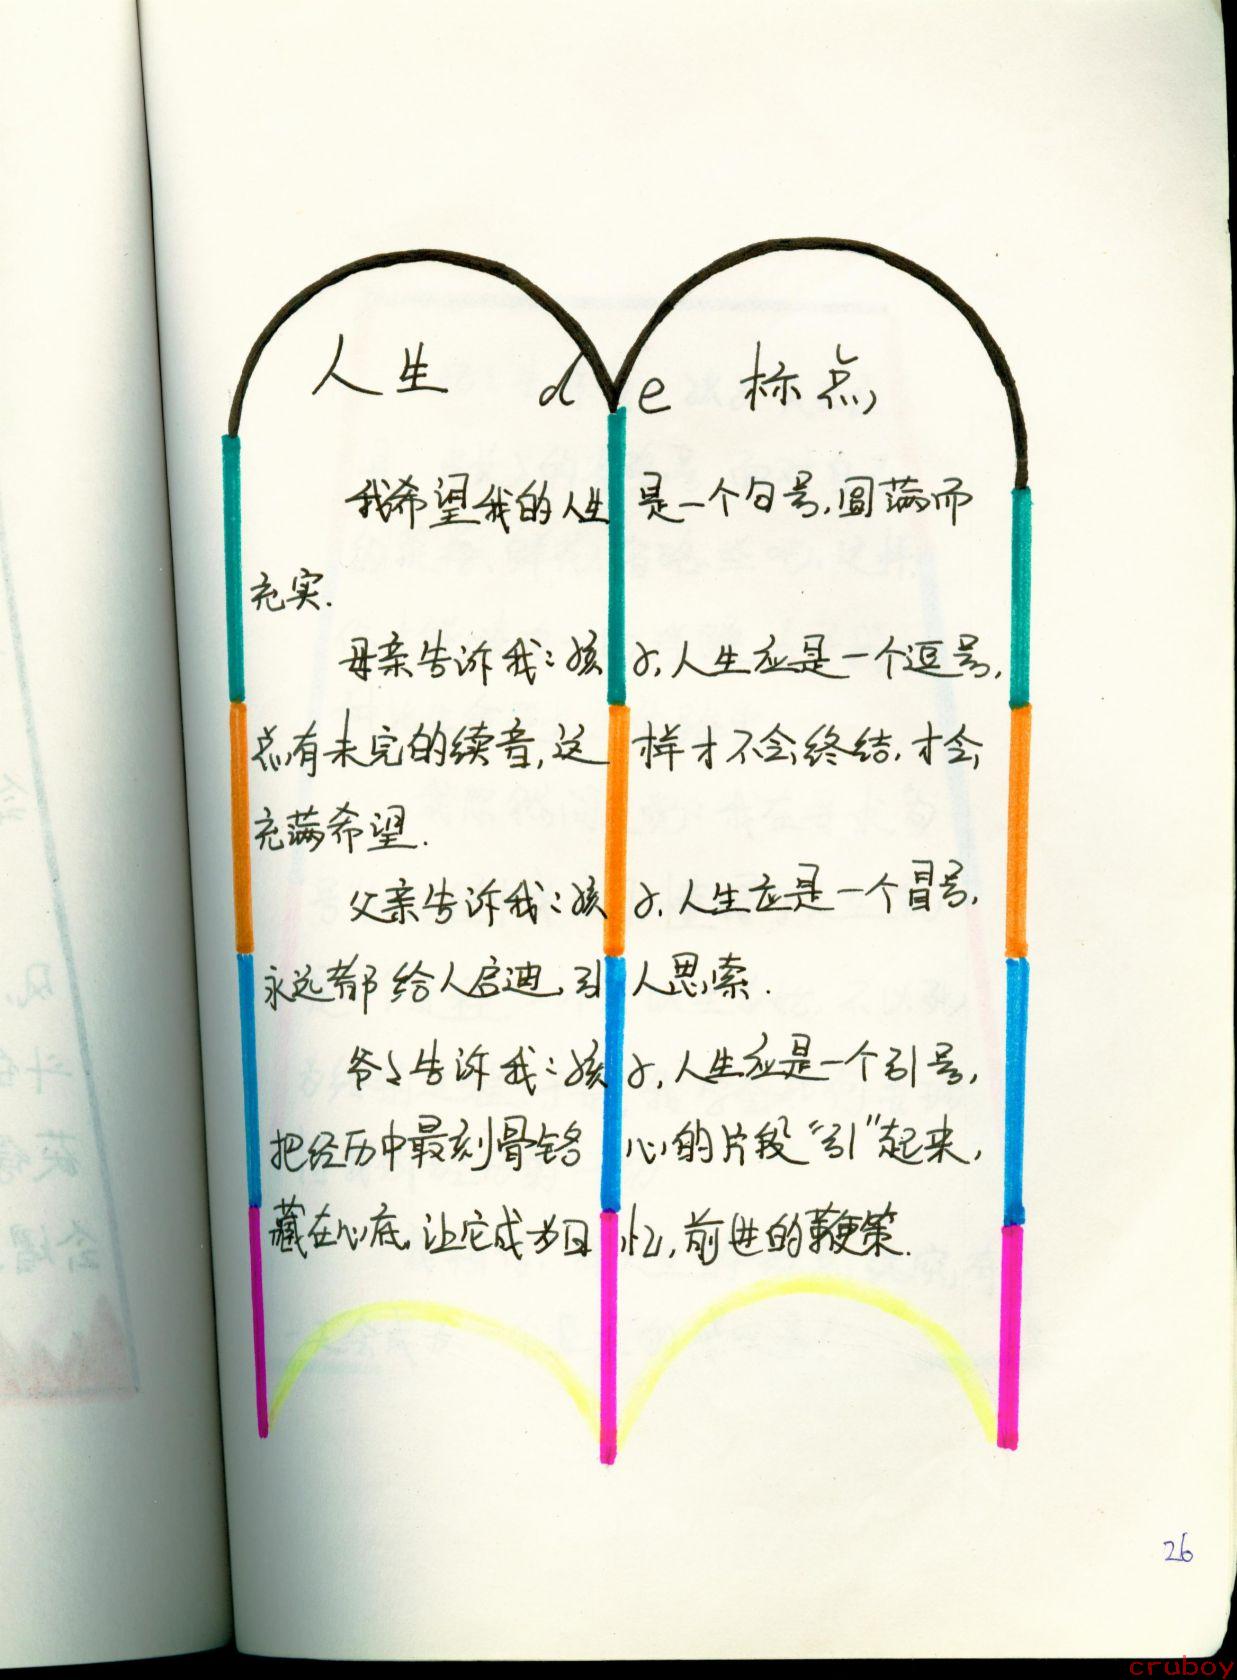 人生 de 标点
我希望我的人生是一个句号，圆满而
充实.
母亲告诉我：孩子，人生应是一个逗号，
点有未完的续音，这样才不会终结，才会
充满希望.
父亲告诉我：孩子，人生应是一个冒号，
永远都给人启迪，引人思索.
爷爷告诉我：孩子，人生应是一个引号，
把经历中最刻骨铭心的片段“引”起来，
藏在心底，让它成为回忆，前进的鞭策.
26
cruboy